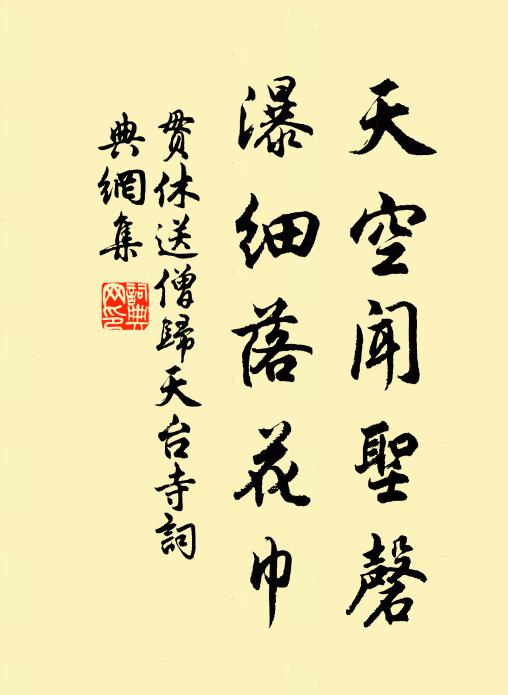 天空闻聖磬
瀑細落花巾
贯休送僧歸天台寺詞
典網集
詞典
网印